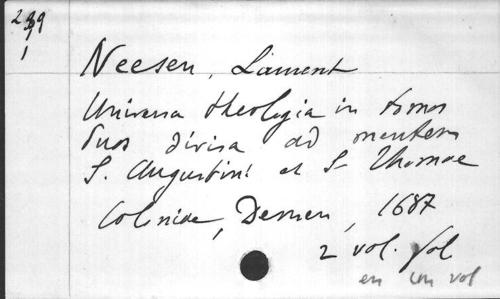 239
1
Neesen, Laurent
Universa theologia in tomos
duos divisa ad mentem
S. Augustini et S. Thomae
Coloniae, Demen, 1687
2 vol. fol
en un vol